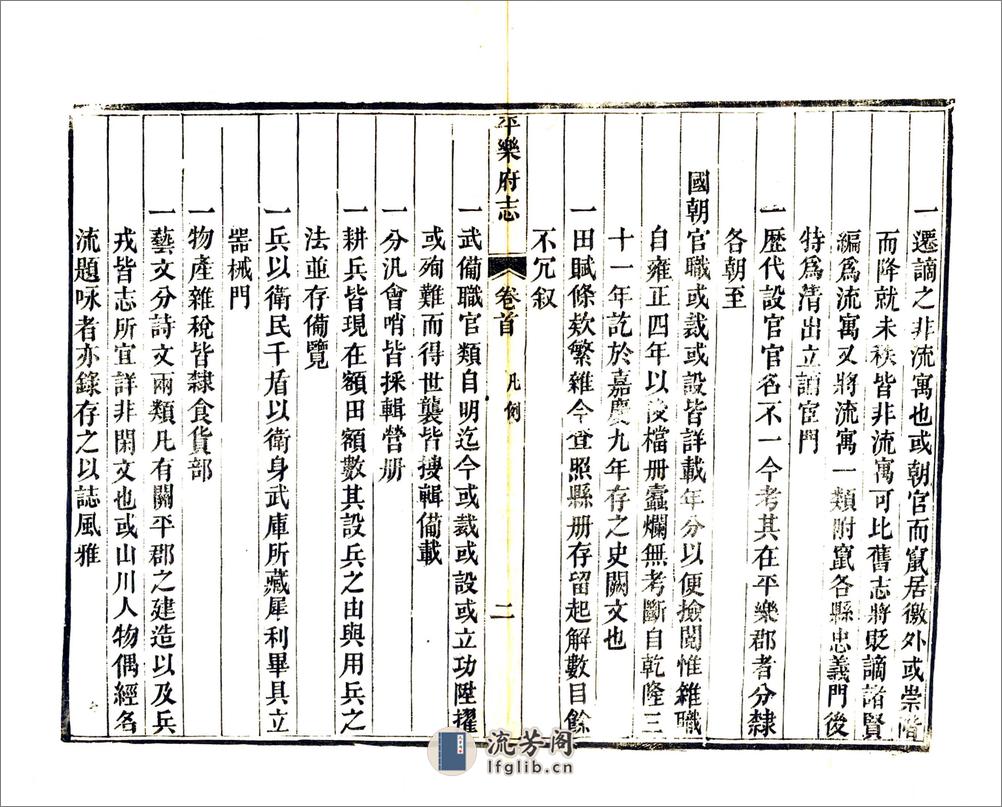 一遷謫之非流寓也或朝官而竄居徼外或崇階
而降就末秩皆非流寓可比舊志將貶謫諸賢
編爲流寓又將流寓一類附竄各縣忠義門後
特爲清出立謫宦門
一歷代設官官名不一今考其在平樂郡者分隸
各朝至
國朝官職或裁或設皆詳載年分以便撿閱惟雜職
自雍正四年以後檔册蠹爛無考斷自乾隆三
十一年訖於嘉慶九年存之史闕文也
一田賦條欵繁雜今查照縣册存留起解數目餘
不冗叙
平樂府志
卷首
凡例
二
一武備職官類自明迄今或裁或設或立功陞擢
或殉難而得世襲皆摉輯備載
一分汛會哨皆採輯營册
一耕兵皆現在額田額數其設兵之由與用兵之
法並存備覽
一兵以衛民干盾以衛身武庫所藏犀利畢具立
器械門
一物產雜稅皆隸食貨部
一藝文分詩文兩類凡有關平郡之建造以及兵
戎皆志所宜詳非閑文也或山川人物偶經名
流題咏者亦錄存之以誌風雅
流芳阁
lfglib.cn